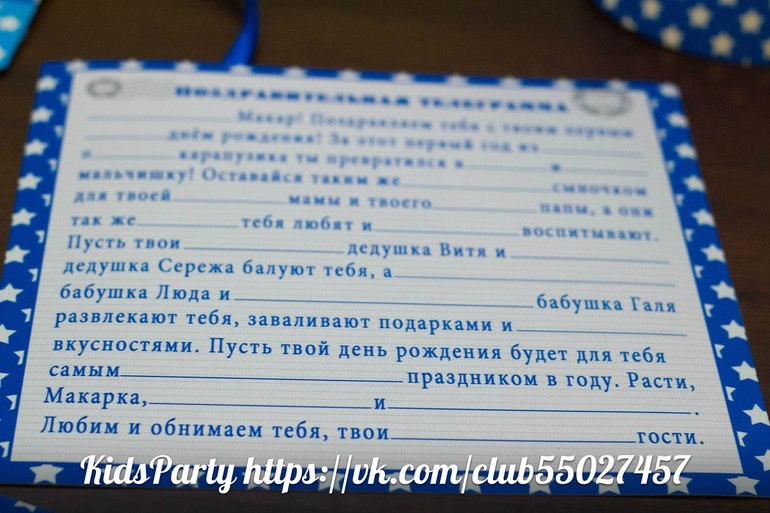 ПОЗДРАВИТЕЛЬНАЯ ТЕЛЕГРАММА
____________ Макар! Поздравляем тебя с твоим первым
____________ днём рождения! За этот первый год из ____________
и ____________ карапузика ты превратился в ____________ и ____________
мальчишку! Оставайся таким же ____________ сыночком
для твоей ____________ мамы и твоего ____________ папы, а они
так же ____________ тебя любят и ____________ воспитывают.
Пусть твои ____________ дедушка Витя и ____________
дедушка Сережа балуют тебя, а ____________
бабушка Люда и ____________ бабушка Галя
развлекают тебя, заваливают подарками и ____________
вкусностями. Пусть твой день рождения будет для тебя
самым ____________ праздником в году. Расти,
Макарка, ____________ и ____________.
Любим и обнимаем тебя, твои ____________ гости.
KidsParty https://vk.com/club55027457